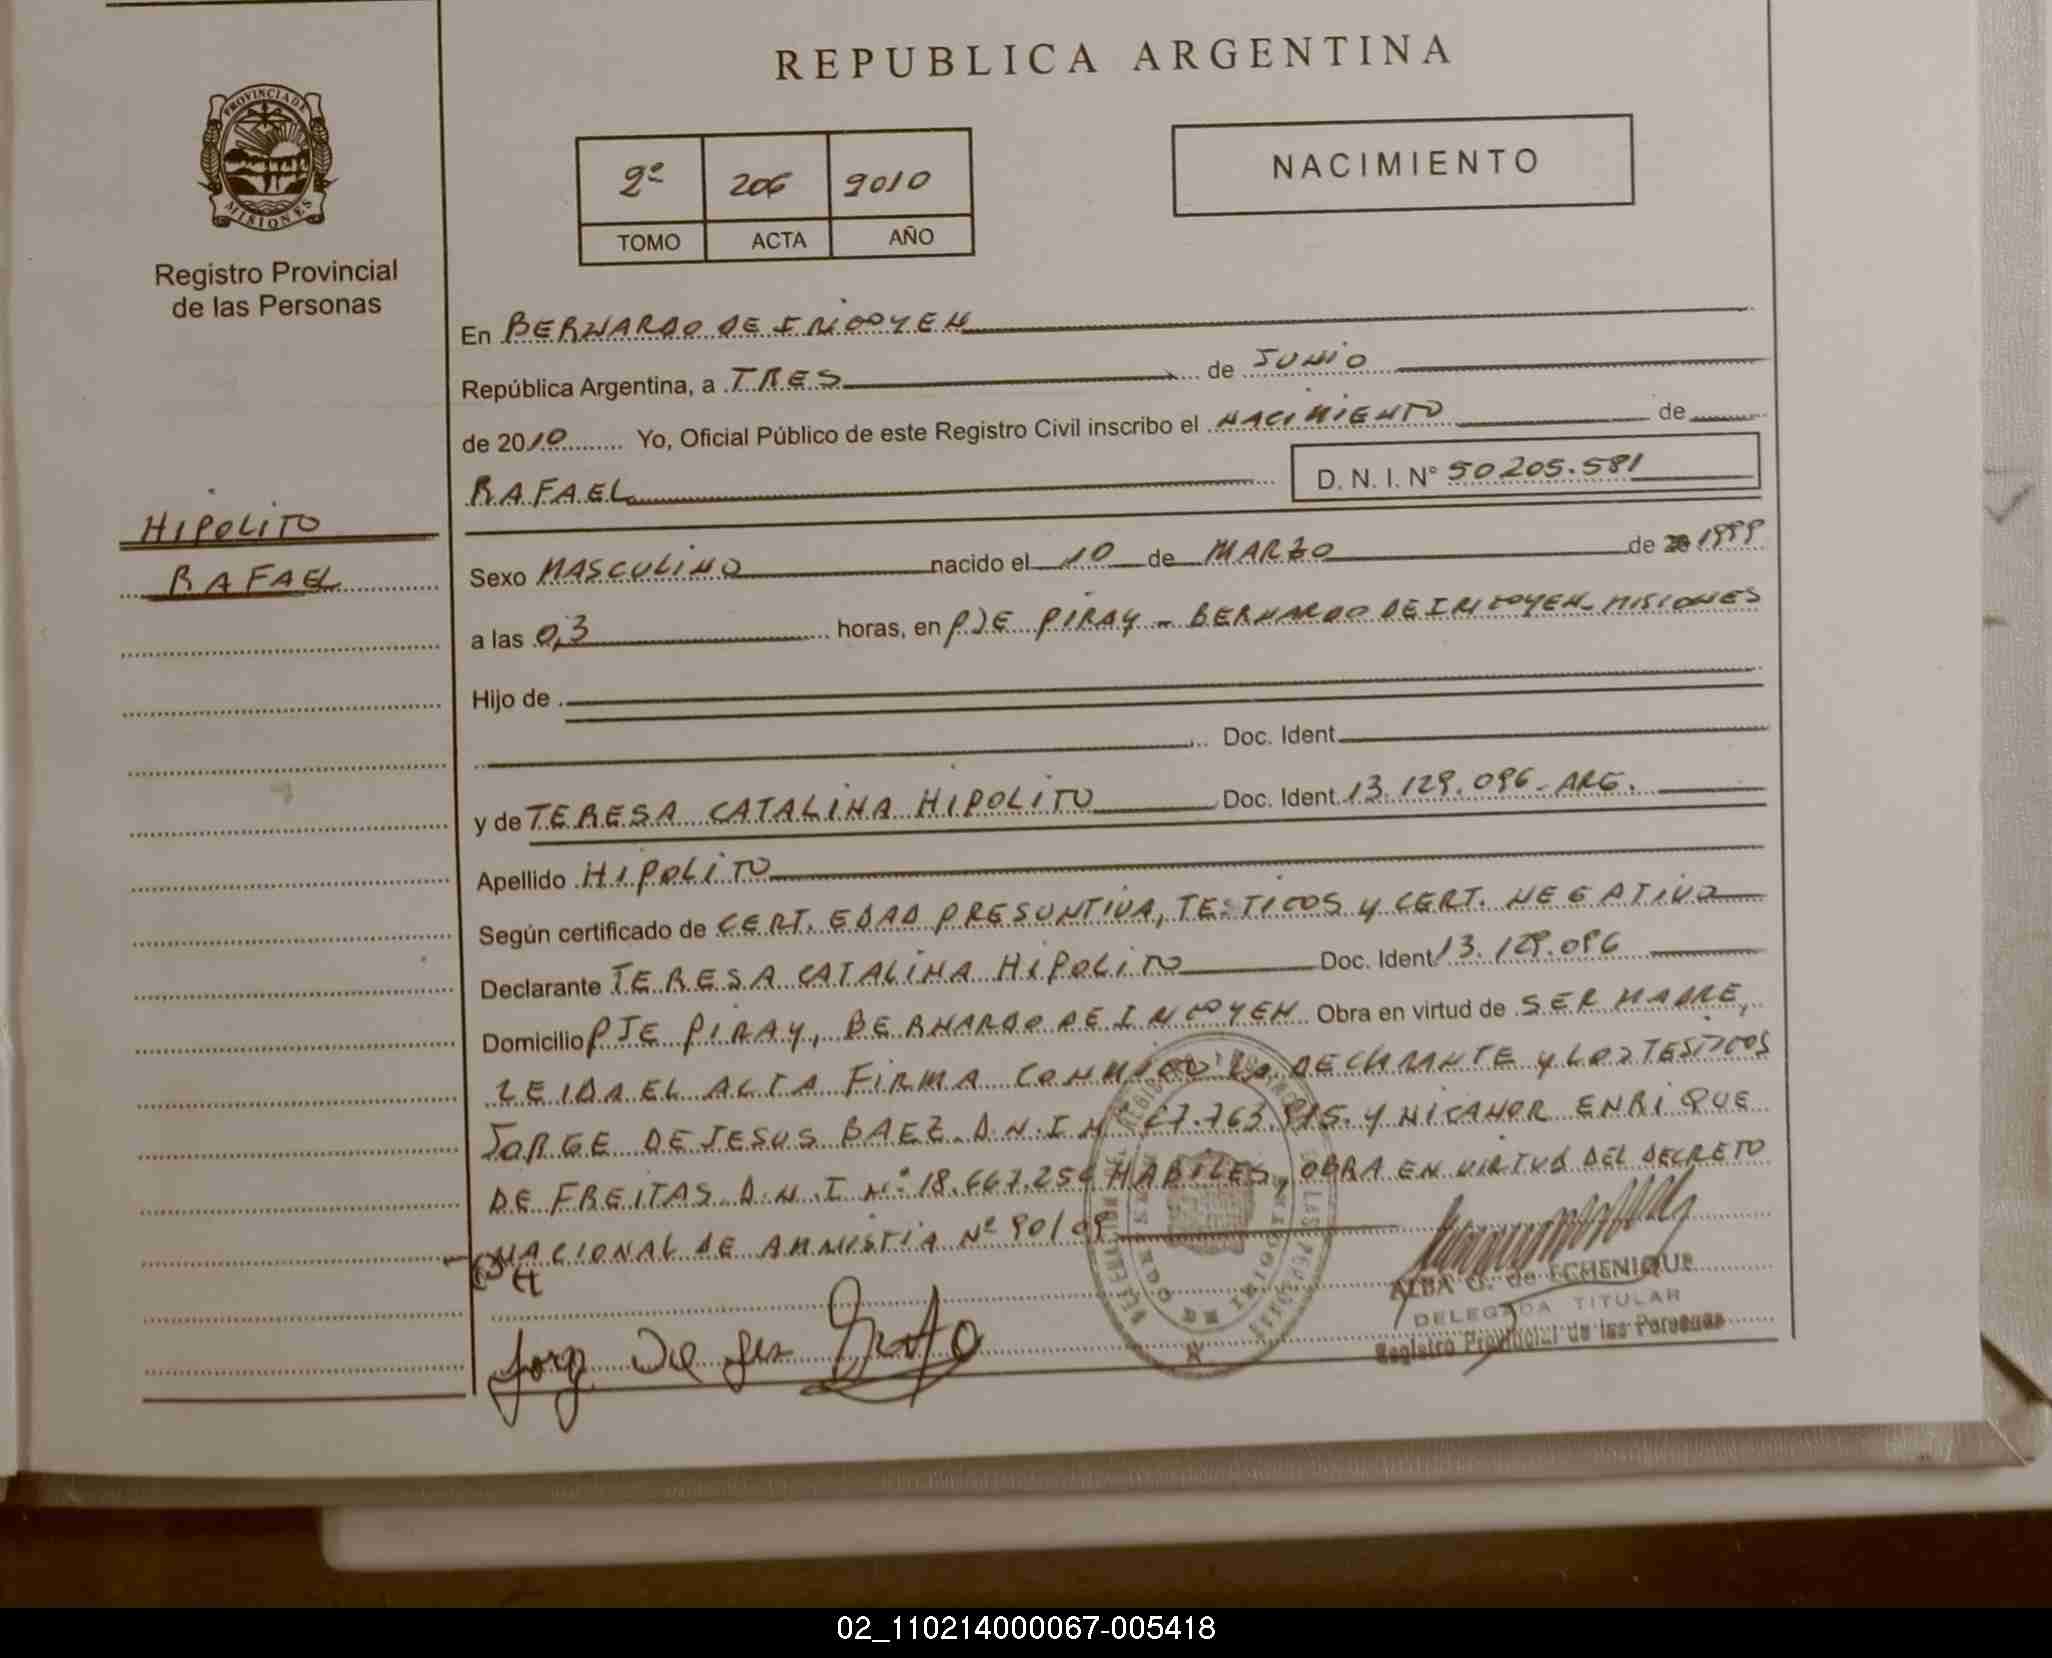 REPUBLICA ARGENTINA
PROVINCIA DE MISIONES
Registro Provincial
de las Personas
2º 206 2010
TOMO ACTA AÑO
NACIMIENTO
HIPOLITO
RAFAEL
En BERNARDO DE IRIGOYEN
República Argentina, a TRES de JUNIO
de 2010 Yo, Oficial Público de este Registro Civil inscribo el NACIMIENTO de
RAFAEL D. N. I. Nº 50205.581
Sexo MASCULINO nacido el 10 de MARZO de 1999
a las 0,3 horas, en PJE PIRAY - BERNARDO DE IRIGOYEN - MISIONES
Hijo de
Doc. Ident.
y de TERESA CATALINA HIPOLITO Doc. Ident. 13.129.096 - ARG.
Apellido HIPOLITO
Según certificado de CERT. EDAD PRESUNTIVA, TESTIGOS y CERT. NEGATIVO
Declarante TERESA CATALINA HIPOLITO Doc. Ident 13.129.096
Domicilio PJE PIRAY, BERNARDO DE IRIGOYEN Obra en virtud de SER MADRE,
LEIDA EL ACTA FIRMA CONMIGO LA DECLARANTE y LOS TESTIGOS
JORGE DE JESUS BAEZ D.N.I Nº 27.763.915. Y NICANOR ENRIQUE
DE FREITAS D.N.I Nº 18.667.254 HABILES, OBRA EN VIRTUD DEL DECRETO
NACIONAL DE AMNISTIA Nº 90/09
Jorge De Jesus
ALBA G. de ECHENIQUE
DELEGADA TITULAR
Registro Provincial de las Personas
02_110214000067-005418